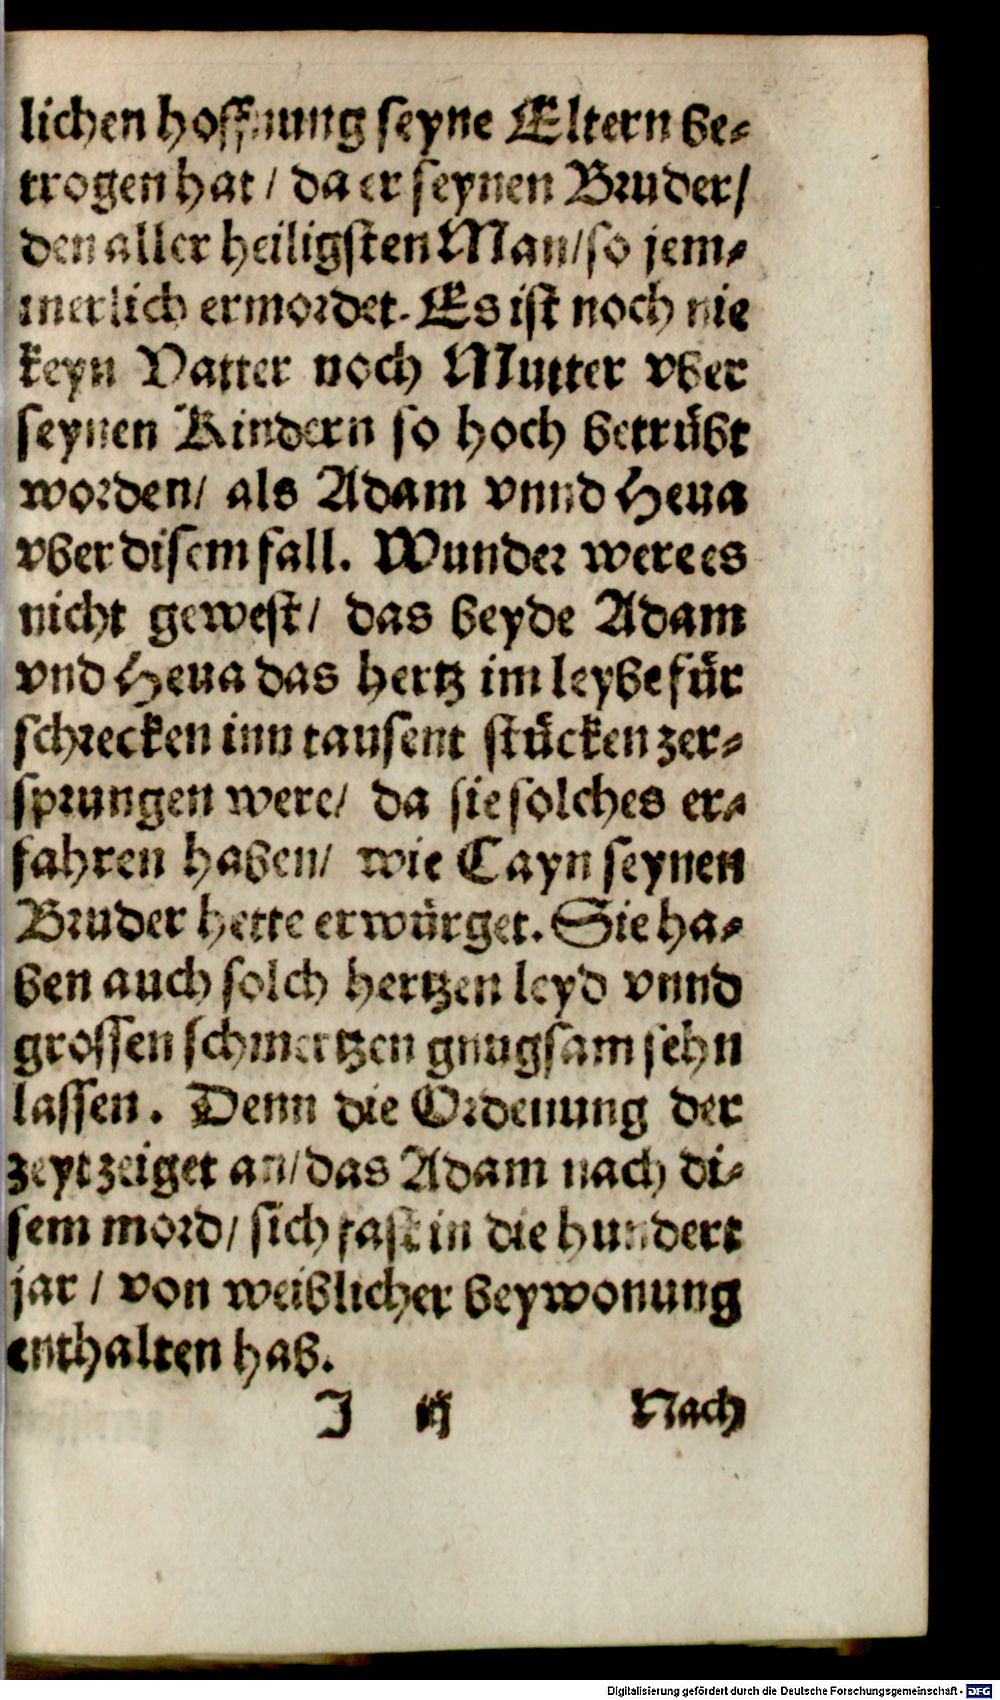 lichen hoffnung seyne Eltern be⸗
trogen hat / da er seynen Bruder /
den aller heiligsten Man / so jem⸗
merlich ermordet. Es ist noch nie
keyn Vatter noch Mutter vber
seynen Kindern so hoch betrübt
worden / als Adam vnnd Heua
vber disem fall. Wunder were es
nicht gewest / das beyde Adam
vnd Heua das hertz im leybe für
schrecken inn tausent stücken zer⸗
sprungen were / da sie solches er⸗
fahren haben / wie Cayn seynen
Bruder hette erwürget. Sie ha⸗
ben auch solch hertzen leyd vnnd
grossen schmertzen gnugsam sehn
lassen. Denn die Ordenung der
zeyt zeiget an / das Adam nach di⸗
sem mord / sich fast in die hundert
jar / von weiblicher beywonung
enthalten hab.
J ij Nach
Digitalisierung gefördert durch die Deutsche Forschungsgemeinschaft - DFG